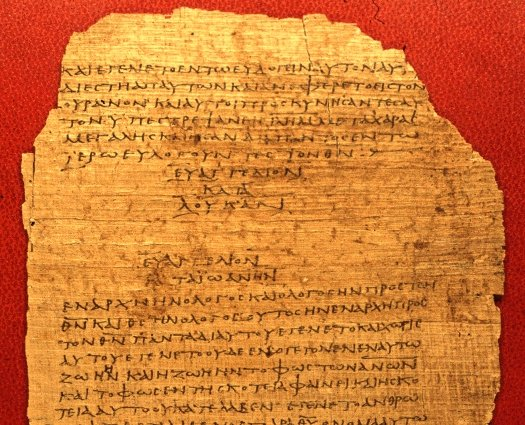 ΚΑΙ ΕΓΕΝΕΤΟ ΕΝ ΤΩ ΕΥΛΟΓΕΙΝ ΑΥΤΟΝ ΑΥ
ΔΙΕϹΤΗ ΑΠ ΑΥΤΩΝ ΚΑΙ ΑΝΕΦΕΡΕΤΟ ΕΙϹ ΤΟΝ
ΟΥΡΑΝΟΝ ΚΑΙ ΑΥΤΟΙ ΠΡΟϹΚΥΝΗϹΑΝΤΕϹ ΑΥ
ΤΟΝ ΥΠΕϹΤΡΕΨΑΝ ΜΕΤΑ ΧΑΡΑϹ
ΜΕΓΑΛΗϹ ΚΑΙ ΗϹΑΝ ΔΙΑ ΠΑΝΤΟϹ ΕΝ ΤΩ
ΙΕΡΩ ΕΥΛΟΓΟΥΝΤΕϹ ΤΟΝ ΘΝ
ΕΥΑΓΓΕΛΙΟΝ
ΚΑΤΑ
ΛΟΥΚΑΝ
ΕΥΑΓΓΕΛΙΟΝ
ΚΑΤΑ ΙΩΑΝΗΝ
ΕΝ ΑΡΧΗ ΗΝ Ο ΛΟΓΟϹ ΚΑΙ Ο ΛΟΓΟϹ ΗΝ ΠΡΟϹ ΤΟΝ
ΘΝ ΚΑΙ ΘϹ ΗΝ Ο ΛΟΓΟϹ ΟΥΤΟϹ ΗΝ ΕΝ ΑΡΧΗ ΠΡΟϹ
ΤΟΝ ΘΝ ΠΑΝΤΑ ΔΙ ΑΥΤΟΥ ΕΓΕΝΕΤΟ ΚΑΙ ΧΩΡΙϹ
ΑΥΤΟΥ ΕΓΕΝΕΤΟ ΟΥΔΕ ΕΝ Ο ΓΕΓΟΝΕΝ ΕΝ ΑΥΤΩ
ΖΩΗ ΗΝ ΚΑΙ Η ΖΩΗ ΗΝ ΤΟ ΦΩϹ ΤΩΝ ΑΝΩΝ
ΚΑΙ ΤΟ ΦΩϹ ΕΝ ΤΗ ϹΚΟΤΕΙΑ ΦΑΙΝΕΙ ΚΑΙ Η ϹΚΟ
ΤΕΙΑ ΑΥΤΟ ΟΥ ΚΑΤΕΛΑΒΕΝ ΕΓΕΝΕΤΟ ΑΝΘΡΩ